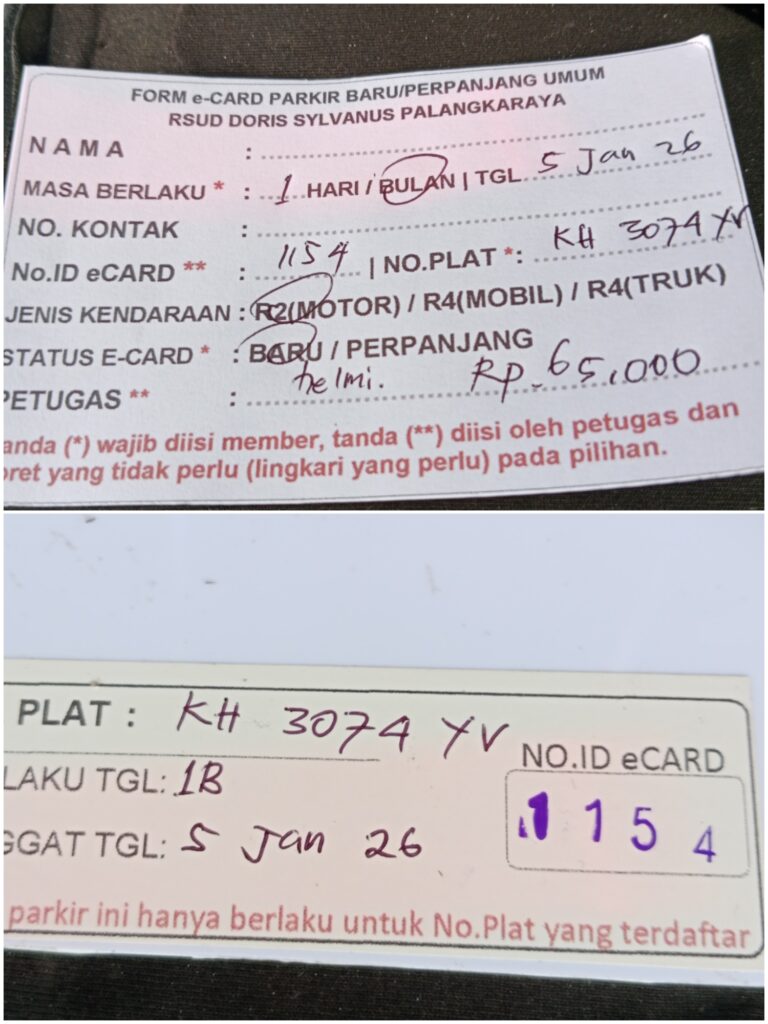 FORM e-CARD PARKIR BARU/PERPANJANG UMUM
RSUD DORIS SYLVANUS PALANGKARAYA
NAMA :
MASA BERLAKU * : 1 HARI / BULAN | TGL 5 Jan 26
NO. KONTAK :
No.ID eCARD ** : 1154 | NO.PLAT *: KH 3074 YV
JENIS KENDARAAN : R2(MOTOR) / R4(MOBIL) / R4(TRUK)
STATUS E-CARD * : BARU / PERPANJANG
PETUGAS ** : helmi. Rp. 65.000
anda (*) wajib diisi member, tanda (**) diisi oleh petugas dan
oret yang tidak perlu (lingkari yang perlu) pada pilihan.
PLAT : KH 3074 YV
NO.ID eCARD
LAKU TGL: 1B
1154
GGAT TGL: 5 Jan 26
parkir ini hanya berlaku untuk No.Plat yang terdaftar